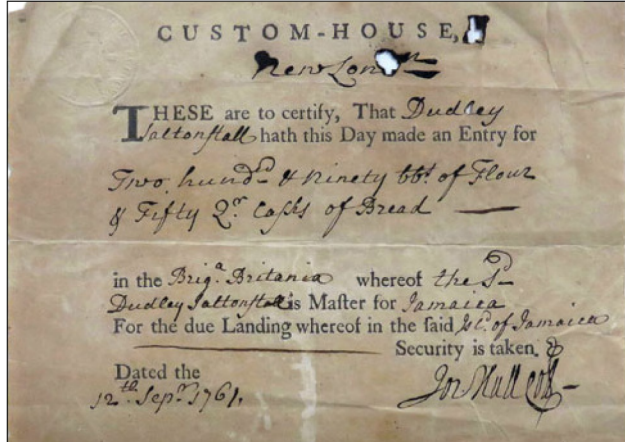 CUSTOM-HOUSE,
New London
THESE are to certify, That Dudley
Saltonstall hath this Day made an Entry for
Two hundd & Ninety bbs of Flour
& Fifty Qr Casks of Bread
in the Briga Britania whereof the Sd
Dudley Saltonstall is Master for Jamaica
For the due Landing whereof in the said Isd. of Jamaica
Security is taken.
Dated the
12th Sepr 1761.
Jos Hull Coll